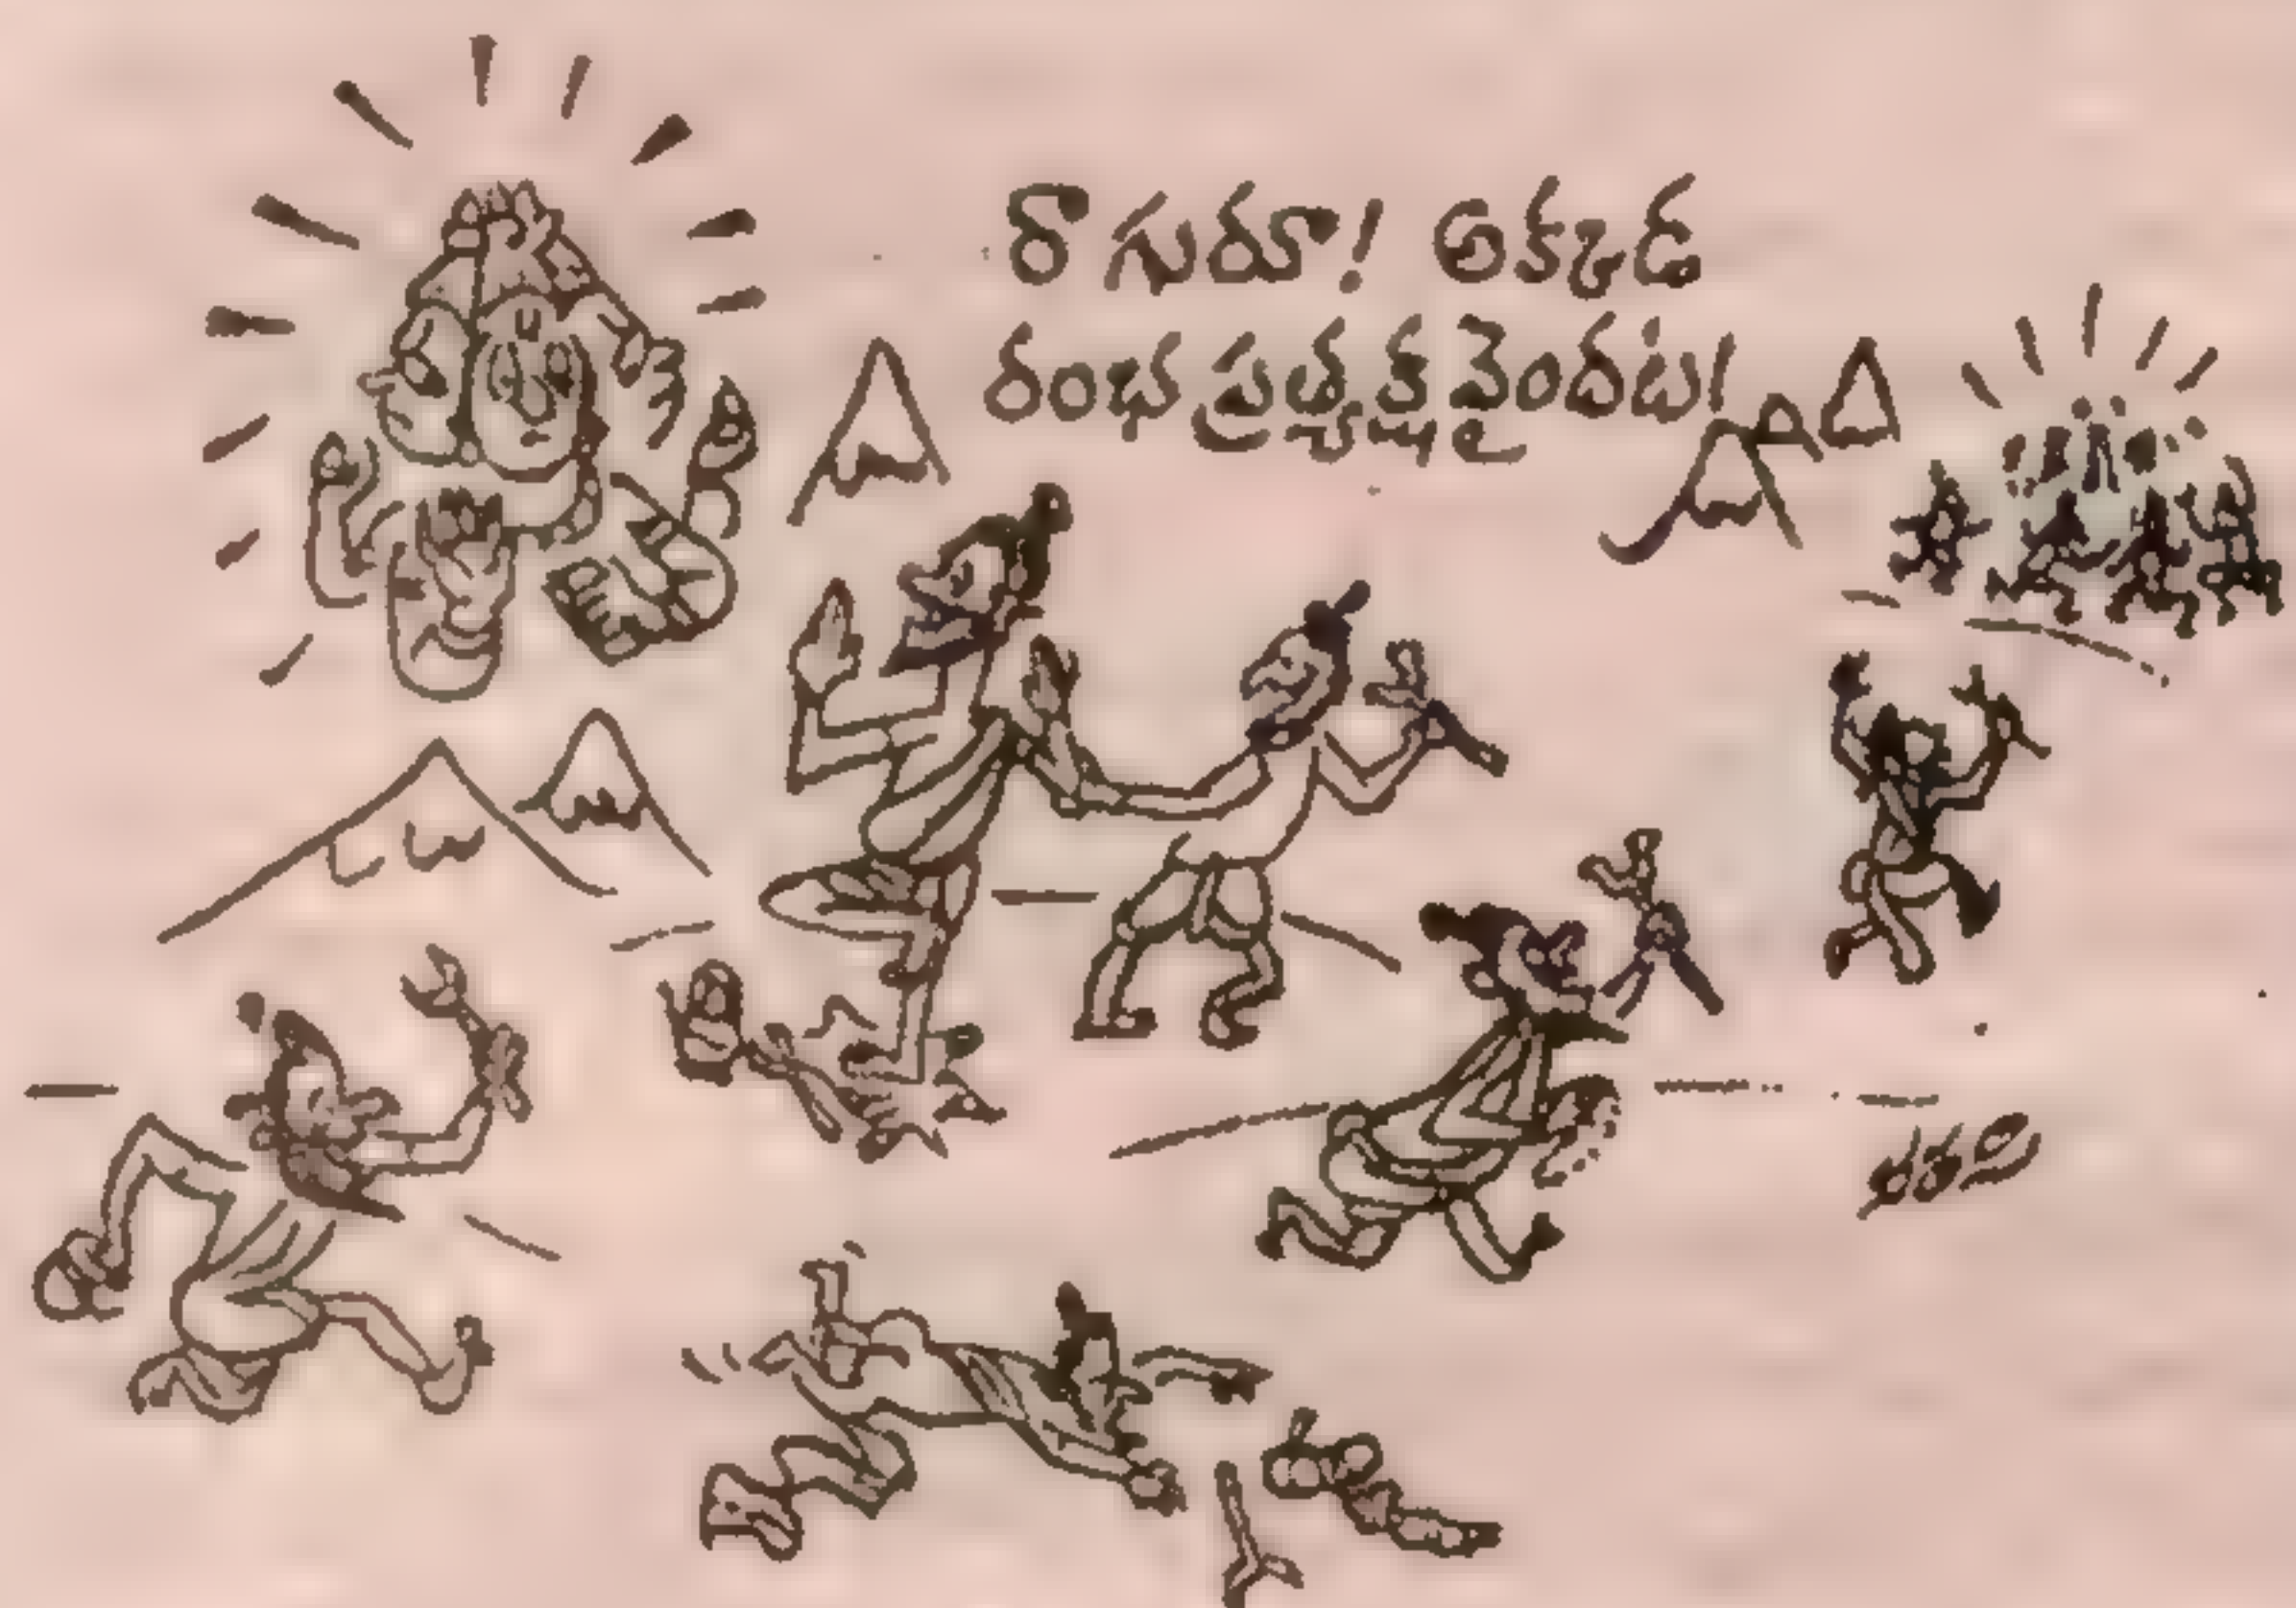 రా గురూ! అక్కడ
రంభ ప్రత్యక్షమైందట!